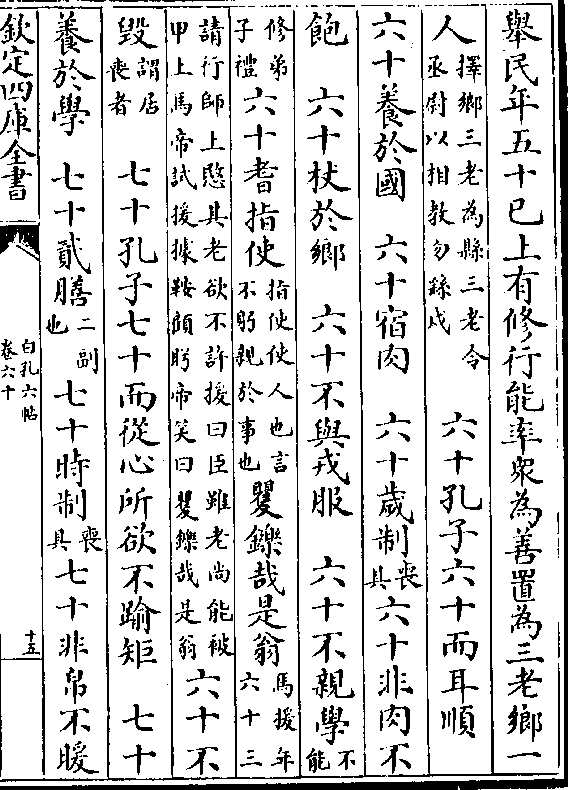 舉民年五十已上有修行能率衆為善置為三老鄉一
人擇鄉三老為縣三老令丞尉以相教勿繇戍　六十孔子六十而耳順
六十養於國　六十宿肉　六十歲制喪具六十非肉不
飽　六十杖於鄉　六十不與戎服　六十不親學不能
修弟子禮六十耆指使指使使人也言不躬親於事也矍鑠哉是翁馬援年六十三
請行師上愍其老欲不許援曰臣雖老尚能被甲上馬帝試援據鞍顧眄帝笑曰矍鑠哉是翁六十不
毀謂居喪者　七十孔子七十而從心所欲不踰矩　七十
養於學　七十貳膳二副也七十時制喪具七十非帛不暖
欽定四庫全書
白孔六帖
卷六十
十五